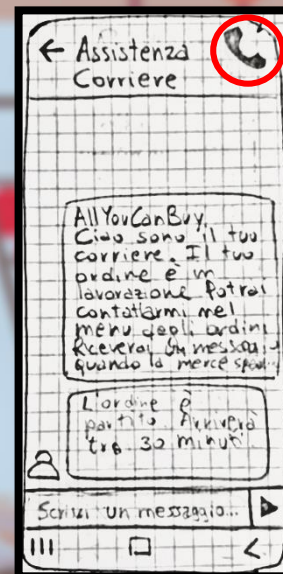 Assistenza
Corriere
AllYouCanBuy
Ciao sono il tuo
corriere. Il tuo
ordine è in
lavorazione Potrai
contattarmi nel
menu degli ordini
Riceverai un messaggio
quando la merce
L'ordine è
partito. Arriverà
tra 30 minuti
Scrivi un messaggio...